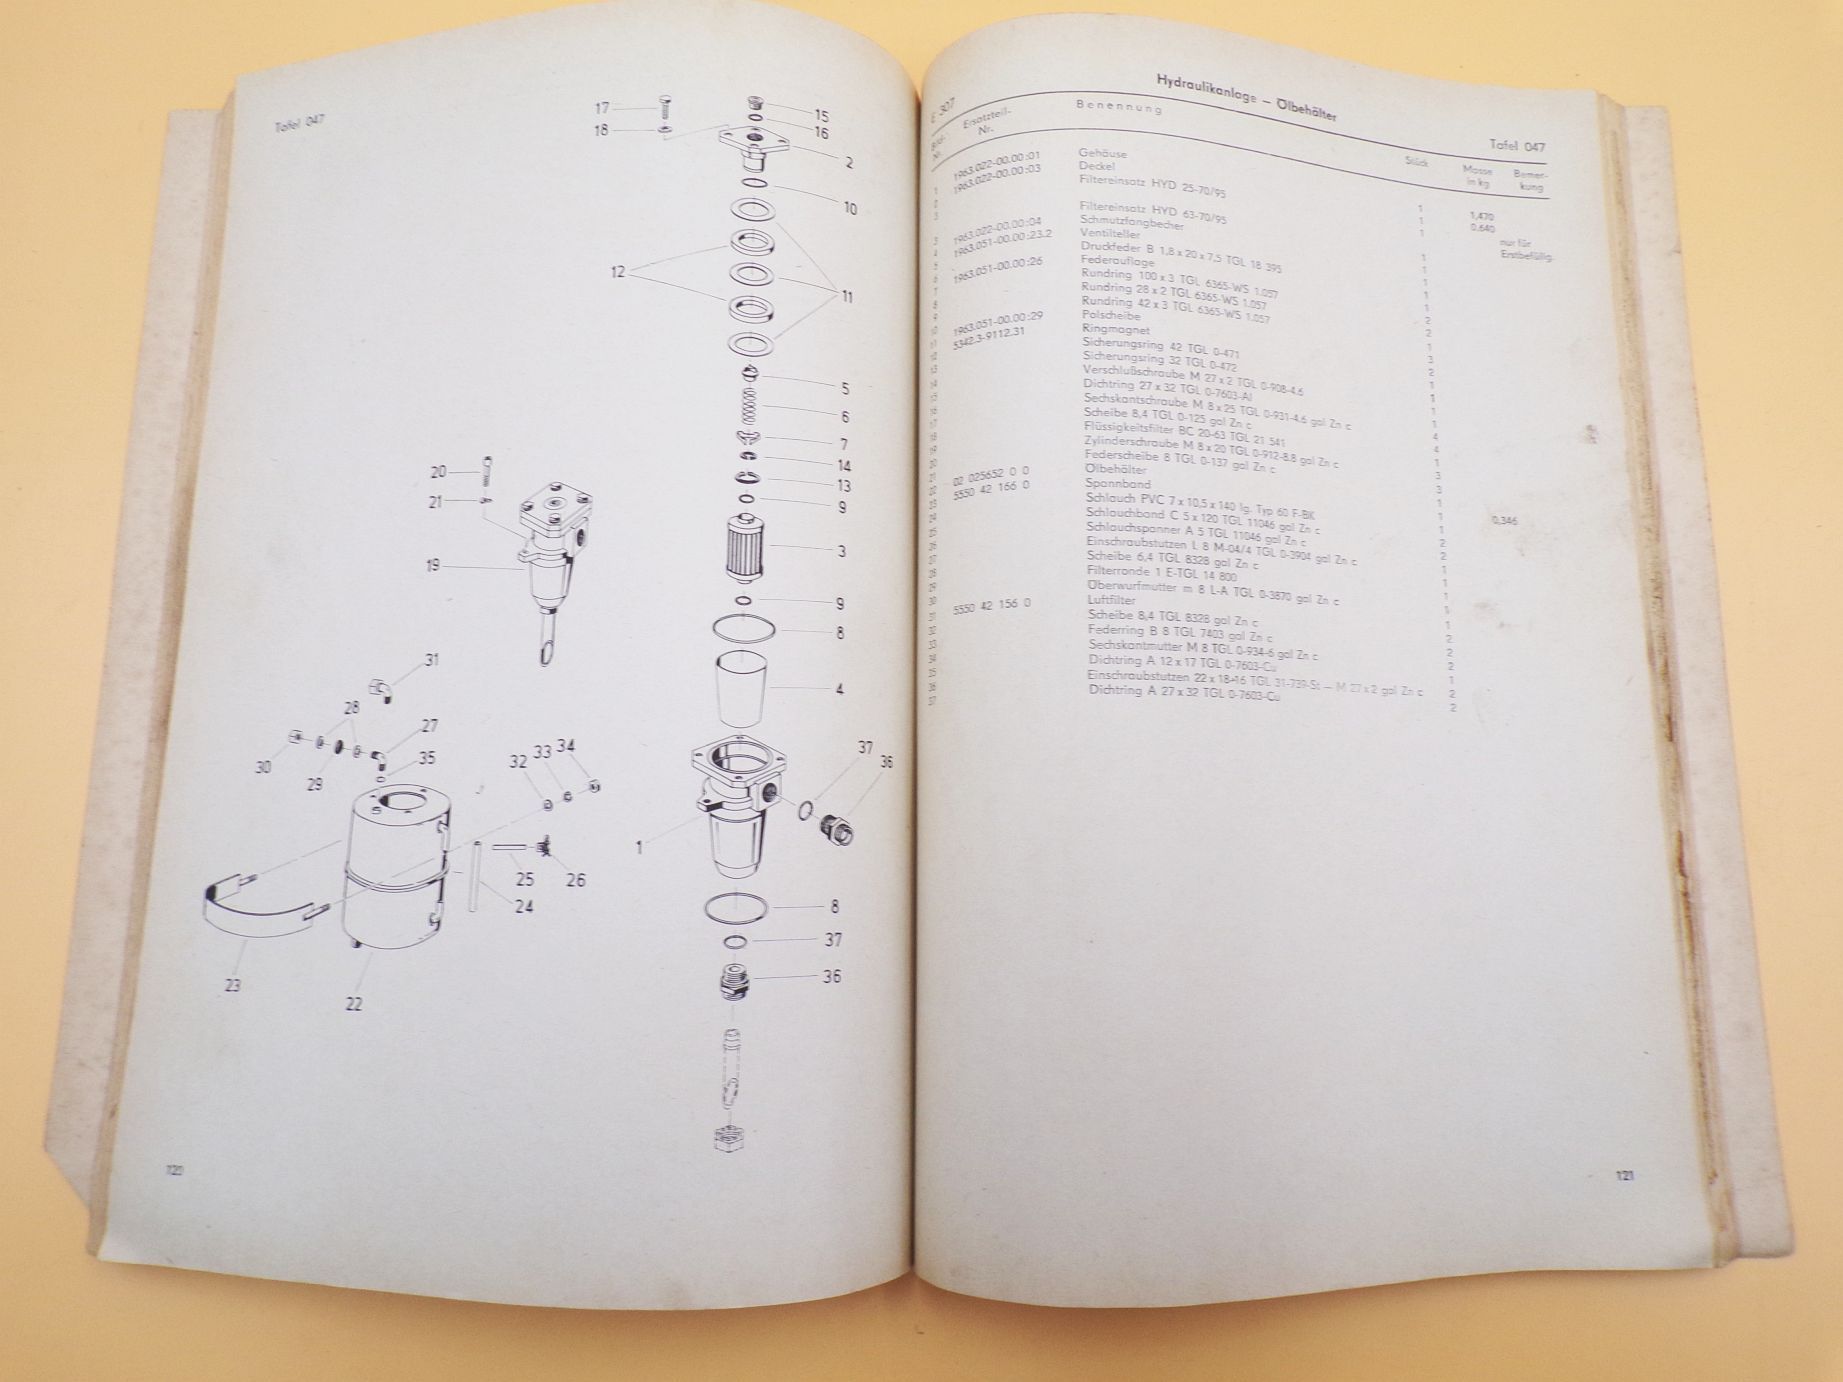 Tafel 047
17
18
15
16
2
10
12
11
5
6
7
14
13
9
3
9
8
4
20
21
19
31
28
27
30
29
35
32 33 34
37
36
1
25
26
24
23
22
8
37
36
120
E 307
Hydraulikanlage – Ölbehälter
Tafel 047
Bild-Nr.
Ersatzteil-Nr.
Benennung
Stück
Masse in kg
Bemerkung
1 1963.022-00.00:01 Gehäuse 1 1,470
2 1963.022-00.00:03 Deckel 1 0,640
3 Filtereinsatz HYD 25-70/95 1 nur für Erstbefüllg.
3 Filtereinsatz HYD 63-70/95 1
4 1963.022-00.00:04 Schmutzfangbecher 1
5 1963.051-00.00:23.2 Ventilteller 1
6 Druckfeder B 1,8 x 20 x 7,5 TGL 18 395 1
7 1963.051-00.00:26 Federauflage 1
8 Rundring 100 x 3 TGL 6365-WS 1.057 2
9 Rundring 28 x 2 TGL 6365-WS 1.057 2
10 Rundring 42 x 3 TGL 6365-WS 1.057 1
11 1963.051-00.00:29 Polscheibe 3
12 5342.3-9112.31 Ringmagnet 2
13 Sicherungsring 42 TGL 0-471 1
14 Sicherungsring 32 TGL 0-472 1
15 Verschlußschraube M 27 x 2 TGL 0-908-4.6 1
16 Dichtring 27 x 32 TGL 0-7603-Al 1
17 Sechskantschraube M 8 x 25 TGL 0-931-4.6 gal Zn c 4
18 Scheibe 8,4 TGL 0-125 gal Zn c 4
19 Flüssigkeitsfilter BC 20-63 TGL 21 541 1
20 Zylinderschraube M 8 x 20 TGL 0-912-8.8 gal Zn c 3
21 Federscheibe 8 TGL 0-137 gal Zn c 3
22 02 025652 0 0 Ölbehälter 1
23 5550 42 166 0 Spannband 1 0,346
24 Schlauch PVC 7 x 10,5 x 140 lg. Typ 60 F-BK 1
25 Schlauchband C 5 x 120 TGL 11046 gal Zn c 2
26 Schlauchspanner A 5 TGL 11046 gal Zn c 2
27 Einschraubstutzen L 8 M-04/4 TGL 0-3904 gal Zn c 1
28 Scheibe 6,4 TGL 8328 gal Zn c
29 Filterronde 1 E-TGL 14 800 1
30 Überwurfmutter m 8 L-A TGL 0-3870 gal Zn c 1
31 5550 42 156 0 Luftfilter 1
32 Scheibe 8,4 TGL 8328 gal Zn c 2
33 Federring B 8 TGL 7403 gal Zn c 2
34 Sechskantmutter M 8 TGL 0-934-6 gal Zn c 2
35 Dichtring A 12 x 17 TGL 0-7603-Cu 1
36 Einschraubstutzen 22 x 18-16 TGL 31-739-St – M 27 x 2 gal Zn c 2
37 Dichtring A 27 x 32 TGL 0-7603-Cu 2
121